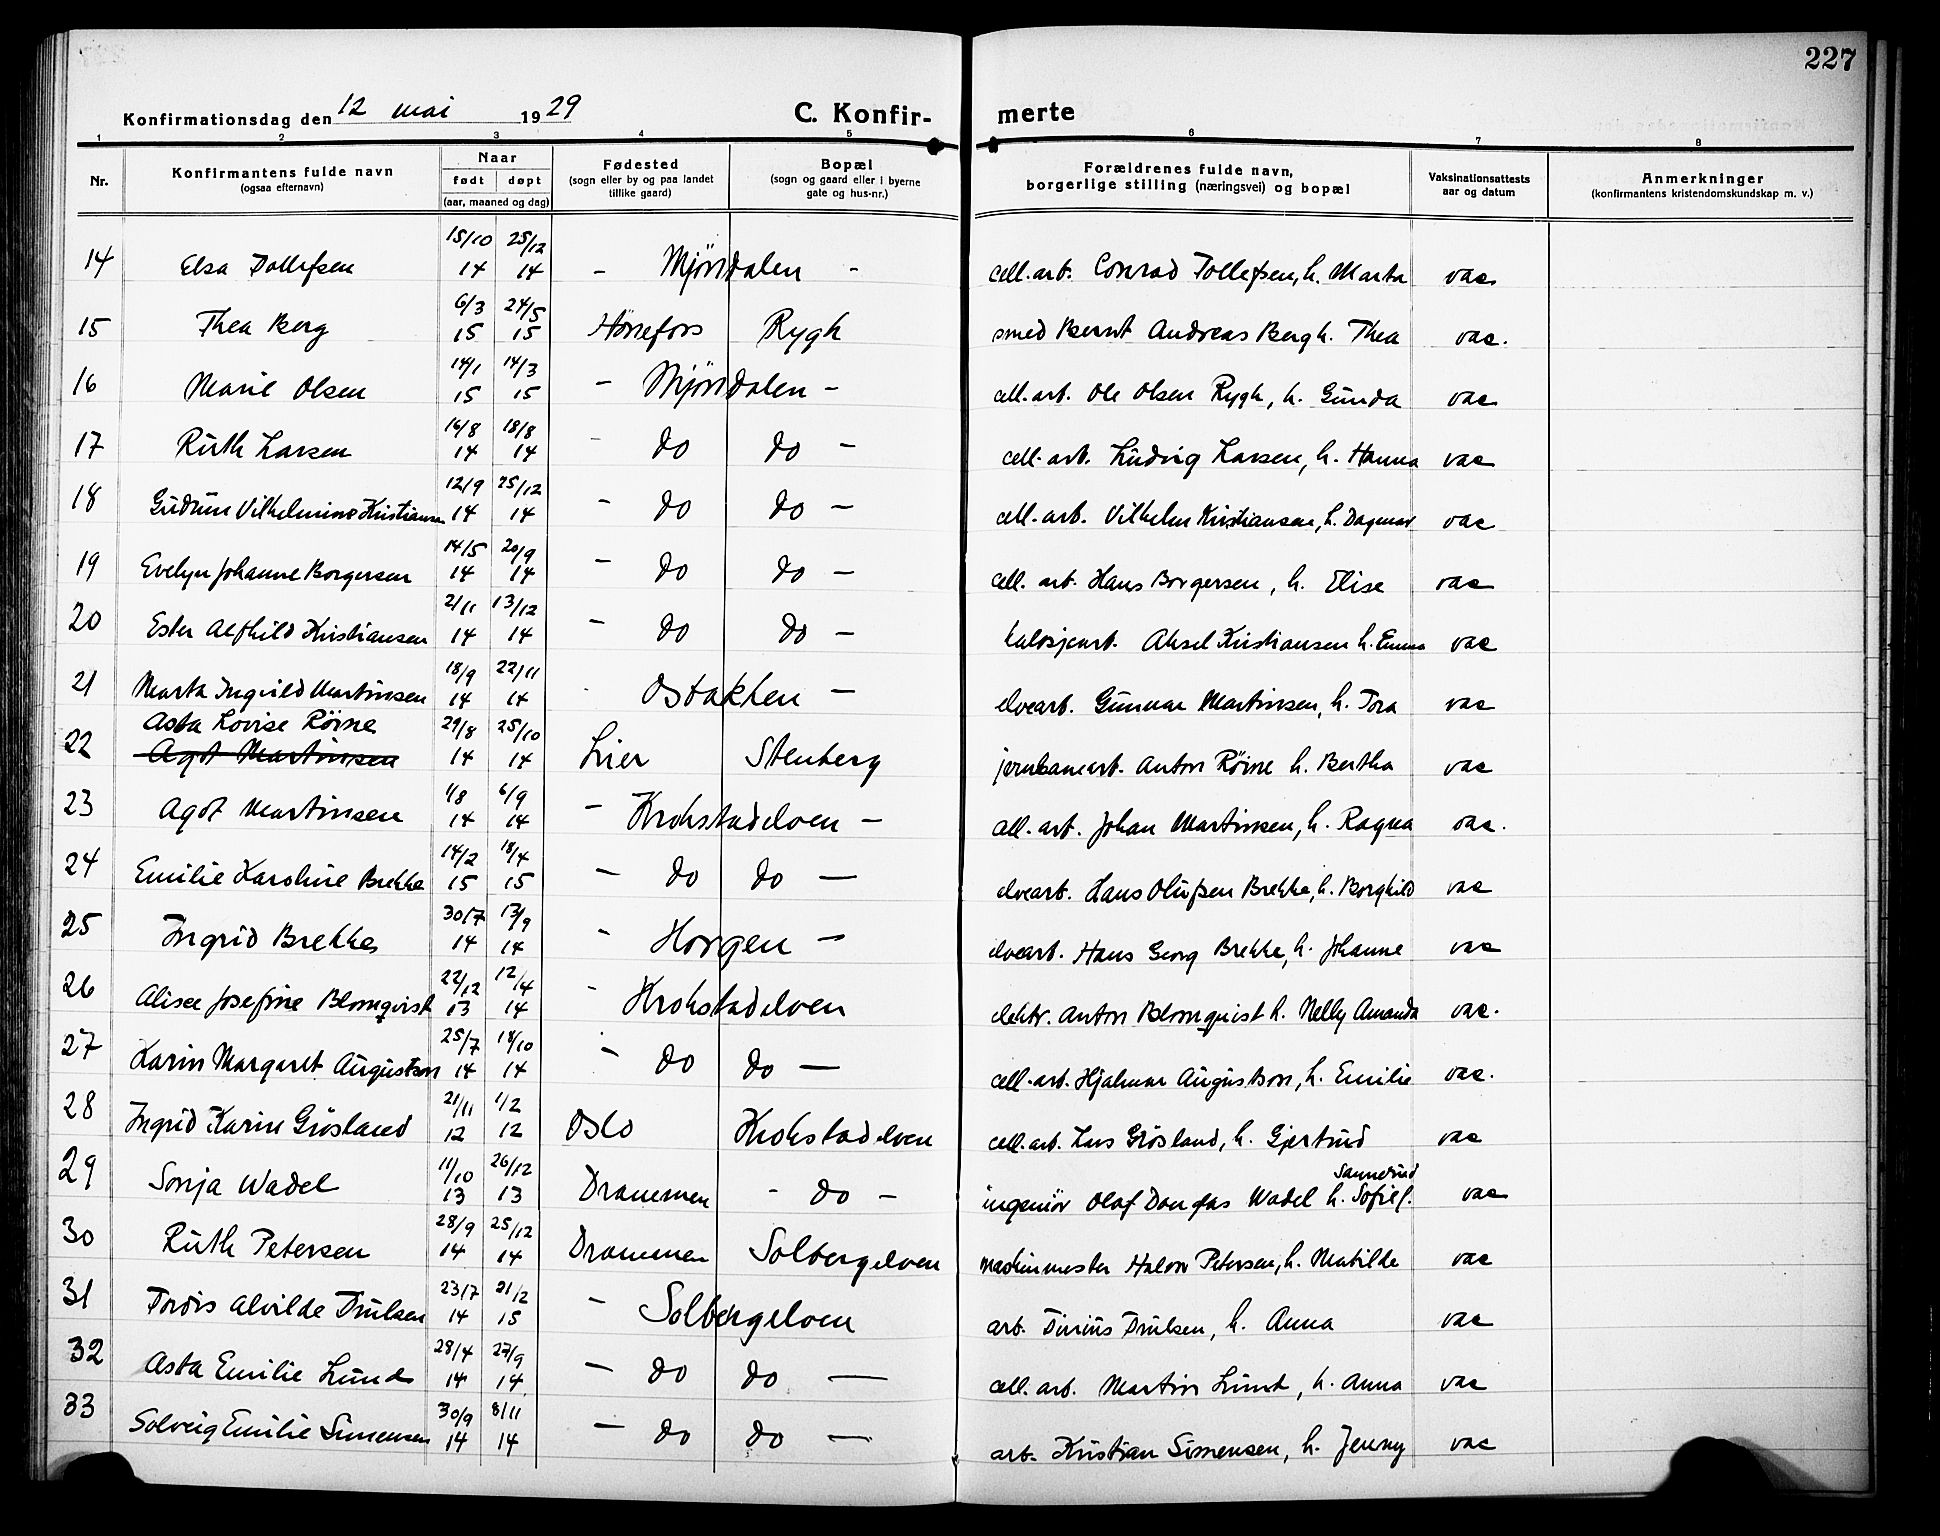 227
Konfirmationsdag den 12 mai 1929 C. Konfir- merte
1 2 3 4 5 6 7 8
Nr. Konfirmantens fulde navn (ogsaa efternavn) Naar født døpt (aar, maaned og dag) Fødested (sogn eller by og paa landet tillike gaard) Bopæl (sogn og gaard eller i byerne gate og hus-nr.) Forældrenes fulde navn, borgerlige stilling (næringsvei) og bopæl Vaksinationsattests aar og datum Anmerkninger (konfirmantens kristendomskundskap m. v.)
15/10 25/12
14 Elsa Tollefsen 14 14 - Mjøndalen - cell. arb. Conrad Tollefsen, h. Marta vac
6/3 24/5
15 Thea Berg 15 15 Hønefoss Rygh smed Bernt Andreas Berg h. Thea vac.
14/1 14/3
16 Marie Olsen 15 15 - Mjøndalen - cell. arb. Ole Olsen Rygh, h. Gunda vac
16/8 18/8
17 Ruth Larsen 14 14 - do do - cell. arb. Ludvig Larsen, h. Hanna vac
12/9 25/12
18 Gudrun Vilhelmine Kristiansen 14 14 - do do - cell. arb. Vilhelm Kristiansen, h. Dagmar vac
14/5 20/9
19 Evelyn Johanne Borgersen 14 14 - do do - cell. arb. Hans Borgersen, h. Elise vac
2/11 13/12
20 Ester Alfhild Kristiansen 14 14 - do do - arb. Aksel Kristiansen h. Emma vac
18/9 22/11
21 Marta Ingvild Martinsen 14 14 - Ostakken - elvearb. Gunnar Martinsen, h. Tora vac
Asta Lovise Röine 29/8 25/10
22 Agot Martinsen 14 14 Lier Stenberg jernbanearb. Anton Röine h. Bertha vac
1/8 6/9
23 Agot Martinsen 14 14 - Krokstadelven - cell. arb. Johan Martinsen, h. Ragna vac.
14/2 18/4
24 Emilie Karoline Brekke 15 15 - do do - elvearb. Hans Olufsen Brekke, h. Borghild vac
30/7 13/9
25 Ingrid Brekke 14 14 - Horgen - elvearb. Hans Georg Brekke, h. Johanne vac
22/12 12/4
26 Alisee Josefine Blomqvist 13 14 - Krokstadelven elektr. Anton Blomqvist h. Nelly Amanda vac.
25/7 18/10
27 Karin Margaret Augustson 14 14 - do do - cell. arb. Hjalmar Augustson, h. Emilie vac.
21/11 1/2
28 Ingrid Karin Grösland 12 12 Oslo Krokstadelven cell. arb. Lars Grösland, h. Gjertrud vac
11/10 26/12 Sannerud
29 Sonja Wadel 13 13 Drammen - do - ingeniör Olaf Wadel h. Sofie f. vac
28/9 25/12
30 Ruth Petersen 14 14 Drammen Solbergelven maskinmester Halvor Petersen, h. Matilde vac
23/7 21/2
31 Tordis Alvilde Trulsen 14 15 - Solbergelven arb. Trulsen, h. Anna vac
28/4 27/9
32 Asta Emilie Lund 14 14 - do do - cell. arb. Martin Lund, h. Anna vac
30/9 8/11
33 Solveig Emilie Simensen 14 14 - do do - arb. Kristian Simensen, h. Jenny vac